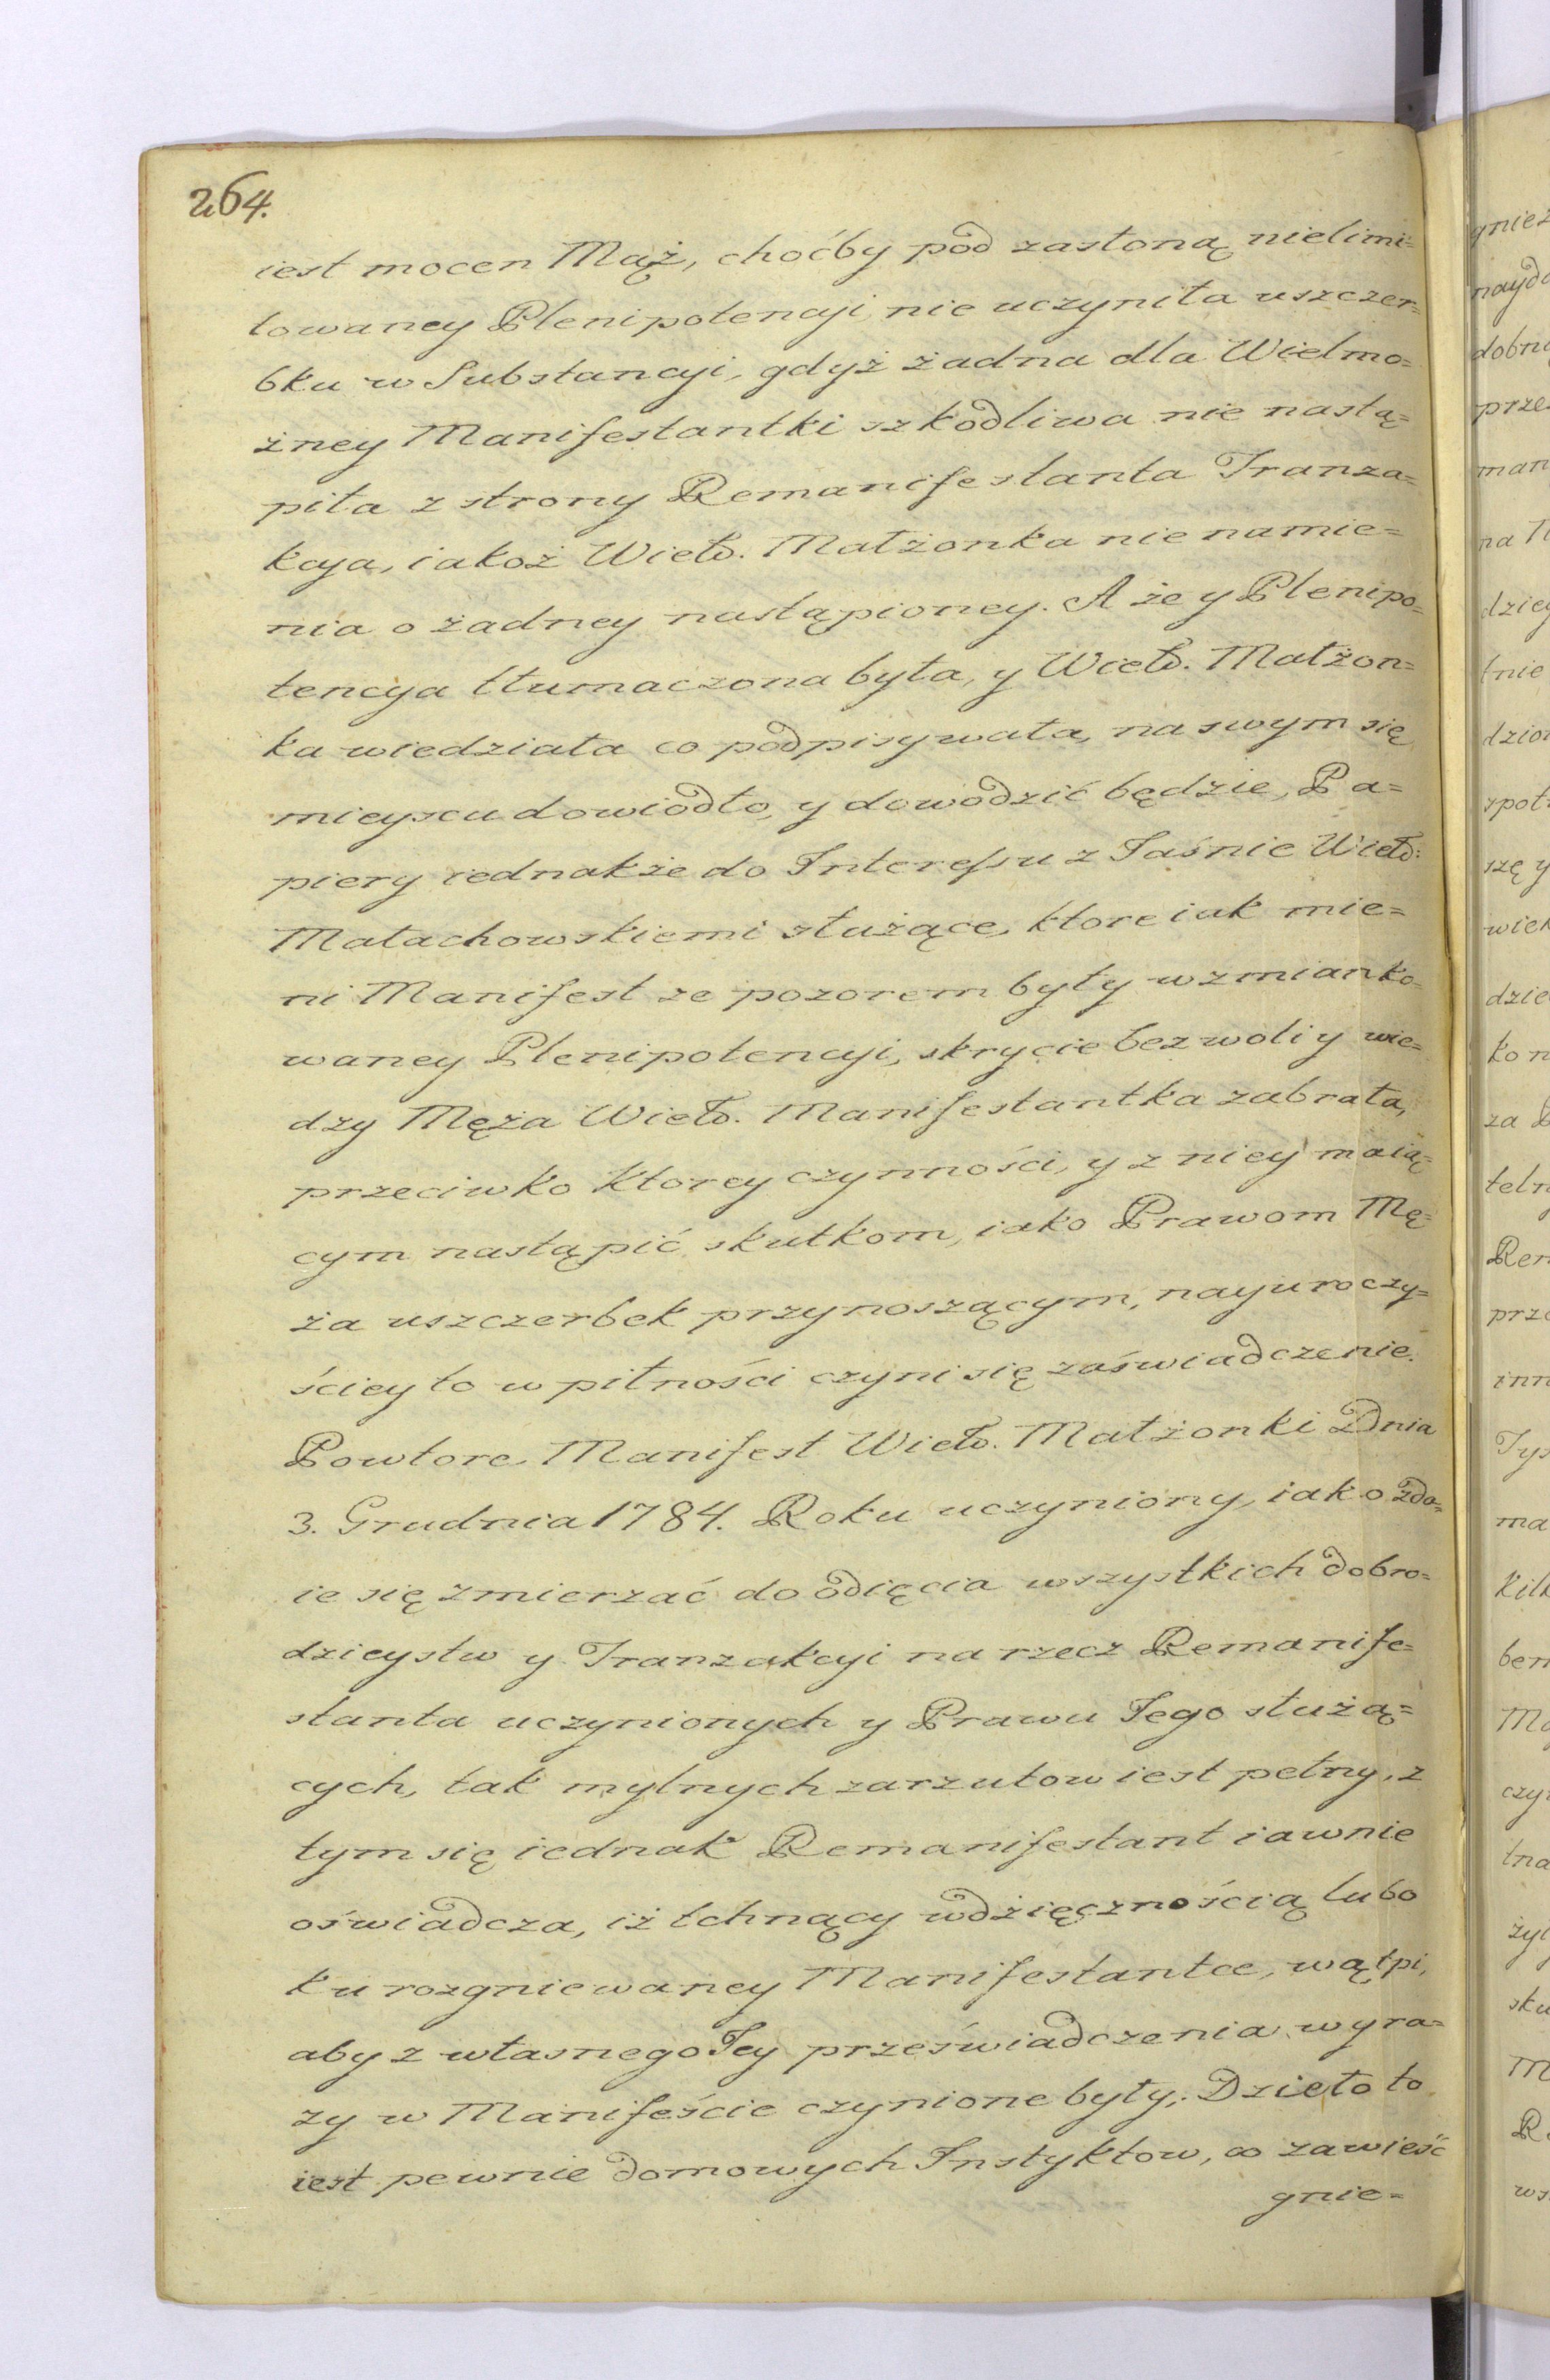 264.
iest mocen Mąż, choćby pod zasłoną nielimi=
towaney Plenipotencji nie uczyniła uszczer=
bku w Substancyi, gdyż żadna dla Wielmo=
żney Manifestantki szkodliwa nie nastą=
piła z strony Remanifestanta Tranza=
kcya, iakoż Wielb. Małżonka nie namie=
nia o żadney nastąpioney. A że y Plenipo=
tencya tłumaczona była, y Wielb. Małżon=
ka wiedziała co podpisywała, na swym się
mieyscu dowiodło, y dowodzić będzie, Pa=
piery iednakże do Interessu z Jaśnie Wielb:
Małachowskiemi służące, ktore iak mie=
ni Manifest ze pozorem były wzmianko=
waney Plenipotencyi, skrycie bez woli y wie=
dzy Męża Wielb. Manifestantka zabrała,
przeciwko ktorey czynności, y z niey maią=
cym nastąpić skutkom, iako Prawom Mę=
ża uszczerbek przynoszącym, nayuroczy=
ściey to w pilności czyni się zaświadczenie.
Powtore Manifest Wielb. Małżonki Dnia
3. Grudnia 1784. Roku uczyniony, iako zda=
ie się zmierzać do odięcia wszystkich dobro=
dzieystw y Tranzakcyi na rzecz Remanife=
stanta uczynionych y Prawu Jego służą=
cych, tak mylnych zarzutow iest pełny, z
tym się iednak Remanifestant iawnie
oświadcza, iż tchnący wdzięcznością lubo
ku rozgniewaney Manifestantce, wątpi,
aby z własnego Jey przeświadczenia wyra=
zy w Manifeście czynione były; Dzieło to
iest pewnie domowych Instyktow, co zawieść
gnie=